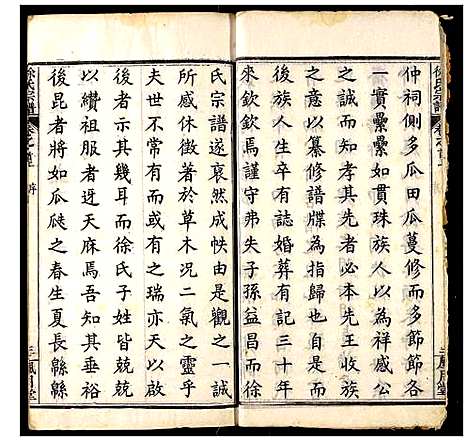 仲祠側多瓜田瓜蔓修而多節節各
一實纍纍如貫珠族人以為祥感公
之意以纂修譜牒為指歸也自而
後族人生卒有誌婚葬有記三十年
來欽欽焉謹守弗失子孫益昌而徐
氏宗譜遂裒然成帙由是觀之一誠
所感休徵著於草木況二氣之靈乎
夫世不常有之瑞亦天之以
後者示其幾耳而徐氏子姓皆
以纘祖服者迓天庥焉吾知其垂裕
後昆者將如瓜瓞之春生夏長緜緜
徐氏宗譜
卷之首
序
三
鳳月堂
徐氏宗譜
卷之首
三
鳳月堂